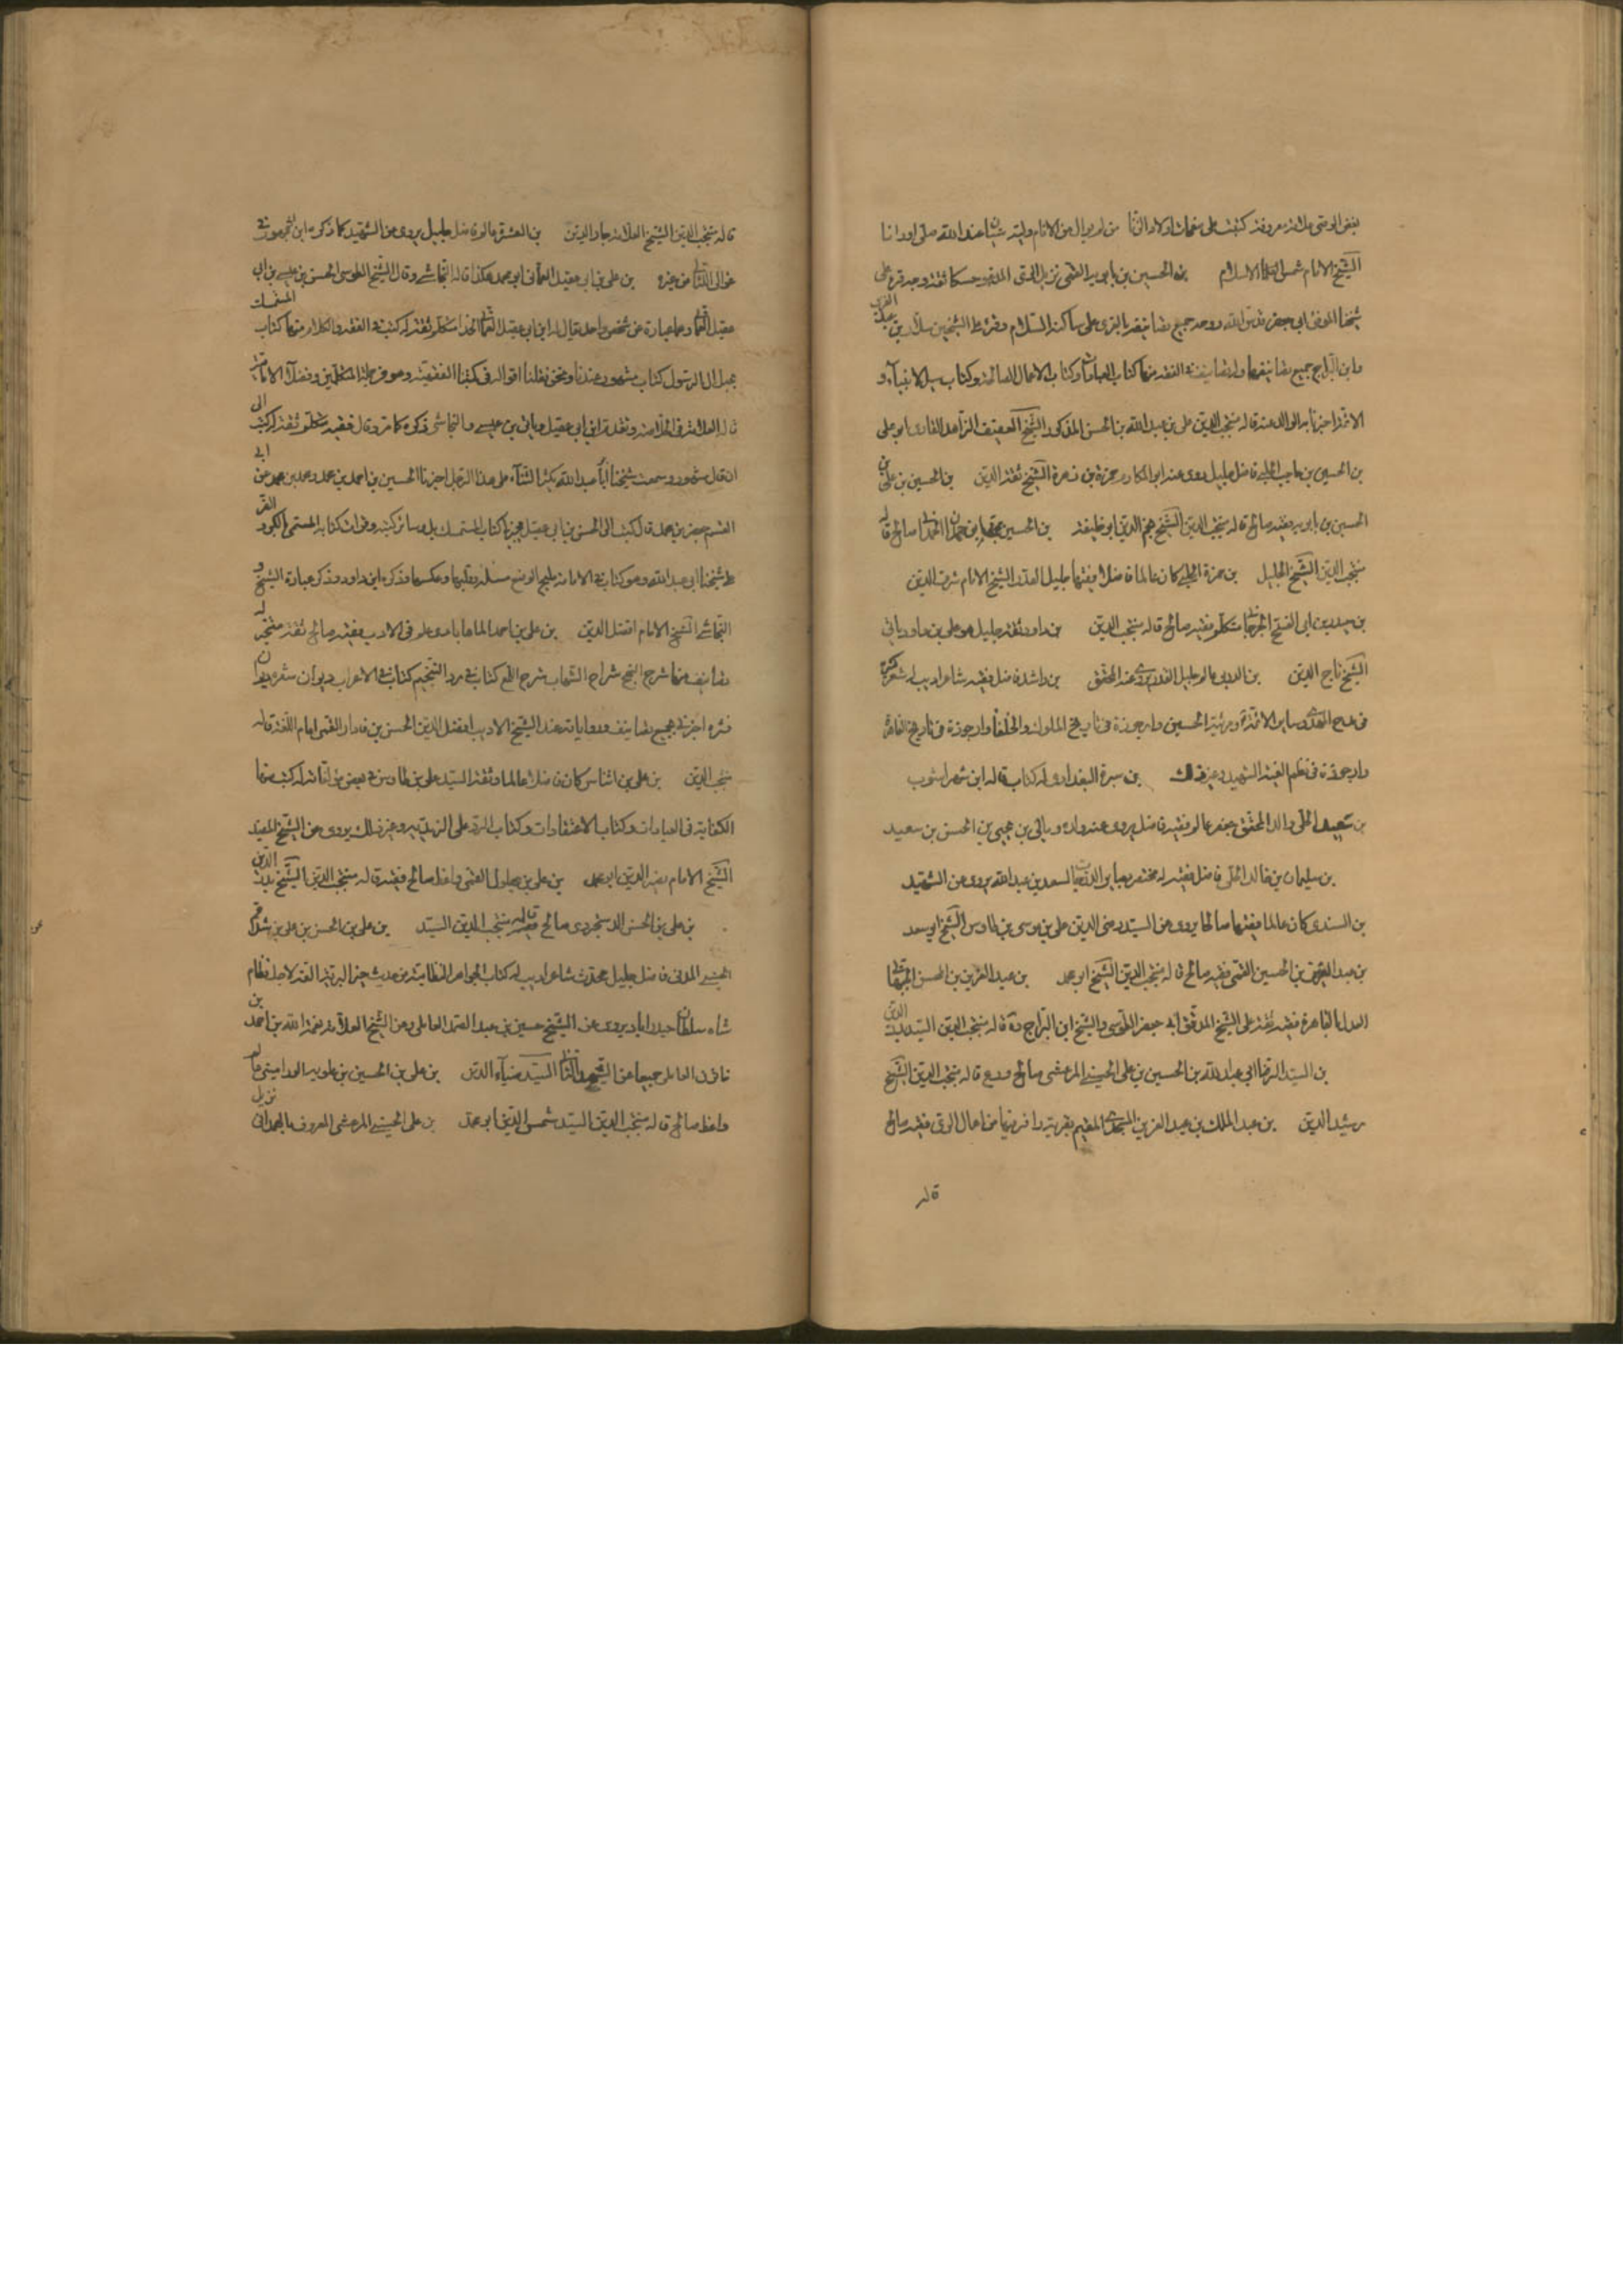 الشيخ الامام شمس الاسلام بن الحسين بن بابويه القمي نزيل الري المدعو حسكا ثقة وجه قرء على
شيخنا الموفق ابي جعفر قدس الله روحه جميع تصانيفه بالغري على ساكنه السلام وقرء على الشيخين سلار بن عبد العزيز
وابن البراج جميع تصانيفهما وله تصانيف في الفقه منها كتاب العبادات وكتاب الاعمال الصالحة وكتاب سير الانبياء و
الائمة اخبرنا بها الوالد عنه قاله منتجب الدين علي بن عبد الله بن الحسن المذكور الشيخ العفيف الزاهد القاري ابو علي
بن الحسين بن حاجب الحلبي فاضل جليل روى عنه ابو المكارم حمزة بن زهرة الشيخ ثقة الدين بن الحسين بن علي بن
الحسين بن بابويه فقيه صالح قاله منتجب الدين الشيخ نجم الدين ابو خليفة بن الحسين بن محمد بن حمدان الحمداني صالح قاله
منتجب الدين الشيخ الجليل بن حمزة الحلبي كان عالما فاضلا فقيها جليل القدر الشيخ الامام شرف الدين
بن حيدر بن ابي الفتح الجرجاني متكلم فقيه صالح قاله منتجب الدين بن داود ثقة جليل هو علي بن داود ياتي
الشيخ تاج الدين بن الدربي عالم جليل القدر يروي عنه المحقق بن راشد فاضل فقيه شاعر اديب له شعر كثير
في مدح المهدي وساير الائمة ومرثية الحسين وارجوزة في تاريخ الملوك والخلفا وارجوزة في تاريخ القاهرة
وارجوزة في نظم الفية الشهيد وغير ذلك بن سبرة البغدادي له كتاب قاله ابن شهراشوب
بن سعيد الحلي والد المحقق جعفر عالم فقيه فاضل يروي عنه ولده وياتي بن يحيى بن الحسن بن سعيد
بن سليمان بن خالد الحلي فاضل فقيه له مختصر بصاير الدرجات لسعد بن عبد الله يروي عن الشهيد
بن السندي كان عالما فقيها صالحا يروي عن السيد رضي الدين علي بن موسى بن طاوس الشيخ ابو سعد
بن عبد العزيز بن الحسين القمي فقيه صالح قاله منتجب الدين الشيخ ابو محمد بن عبد العزيز بن الحسن الجبهاني
العدل بالقاهرة فقيه ثقة قرء على الشيخ الموفق ابي جعفر الطوسي والشيخ ابن البراج ره قاله منتجب الدين السيد بدر الدين
بن السيد الرضا ابي عبد الله بن الحسين بن علي الحسيني المرعشي صالح ورع قاله منتجب الدين الشيخ
رشيد الدين بن عبد الملك بن عبد العزيز المسجدي المقيم بقرية رامزيها من اعمال الري فقيه صالح
قاله
قاله منتجب الدين الشيخ العلامة عماد الدين بن العشرة عالم فاضل جليل يروي عن الشهيد كما ذكره ابن جمهور في
غوالي اللئالي من غيره بن علي بن ابي عقيل العماني ابو محمد هكذا قاله النجاشي وقال الشيخ الطوسي الحسن بن عيسى بن ابي
عقيل العماني وهما عبارة عن شخص واحد يقال له ابن ابي عقيل العماني الحذا متكلم ثقة له كتب في الفقه والكلام منها كتاب المتمسك
بحبل ال الرسول كتاب مشهور عندنا ونحن نقلنا اقواله في كتبنا الفقهية وهو من جملة المتكلمين وفضلاء الامامية
قاله العلامة في الخلاصة ونقدم ابن ابي عقيل وياتي بن عيسى والنجاشي ذكره كما مر وقال فقيه متكلم ثقة له كتب الى
ان قال مشهور وسمعت شيخنا ابا عبد الله يكثر الثناء على هذا الرجل اخبرنا الحسين بن احمد بن محمد ومحمد بن محمد عن ابي
القسم جعفر بن محمد قال كتب الي الحسن بن ابي عقيل يجيز لي كتاب المتمسك وساير كتبه وقرات كتابه المسمى الكر والفر
على شيخنا ابي عبد الله وهو كتاب في الامامة مليح الوضع مسئلة وقلبها وعكسها وذكره ابن داود وذكر عبارة الشيخ و
النجاشي الشيخ الامام افضل الدين بن علي بن احمد الماهابادي علم في الادب فقيه صالح ثقة متبحر له
تصانيف منها شرح النهج شرح الشهاب شرح اللمع كتاب في رد التنجيم كتاب في الاعراب ديوان شعره ديوان
نثره اخبرني بجميع تصانيفه ورواياته عنه الشيخ الاديب افضل الدين الحسن بن فادار القمي امام اللغة قاله
منتجب الدين بن علي بن اشناس كان فاضلا عالما وثقة السيد علي بن طاوس في بعض مؤلفاته له كتب منها
الكفاية في العبادات وكتاب الاعتقادات وكتاب الرد على الزيدية وغير ذلك يروي عن الشيخ المفيد
الشيخ الامام نصير الدين ابو محمد بن علي بن بهلول القمي واعظ صالح فقيه قاله منتجب الدين الشيخ بدر الدين
بن علي بن الحسن الدستجردي صالح فقيه قاله منتجب الدين السيد بن علي بن الحسن بن علي بن شدقم
الحسيني المدني فاضل جليل محدث شاعر اديب له كتاب الجواهر النظامية من حديث خير البرية الفه لاجل نظام
شاه سلطان حيدراباد يروي عن الشيخ حسين بن عبد الصمد العاملي وعن الشيخ العلامة نعمة الله بن احمد بن
خاتون العاملي جميعا عن الشهيد الثاني السيد ضياء الدين بن علي بن الحسين بن علويه الوراميني عالم
واعظ صالح قاله منتجب الدين السيد شمس الدين ابو محمد بن علي الحسيني المرعشي المعروف بالهمداني نزيل